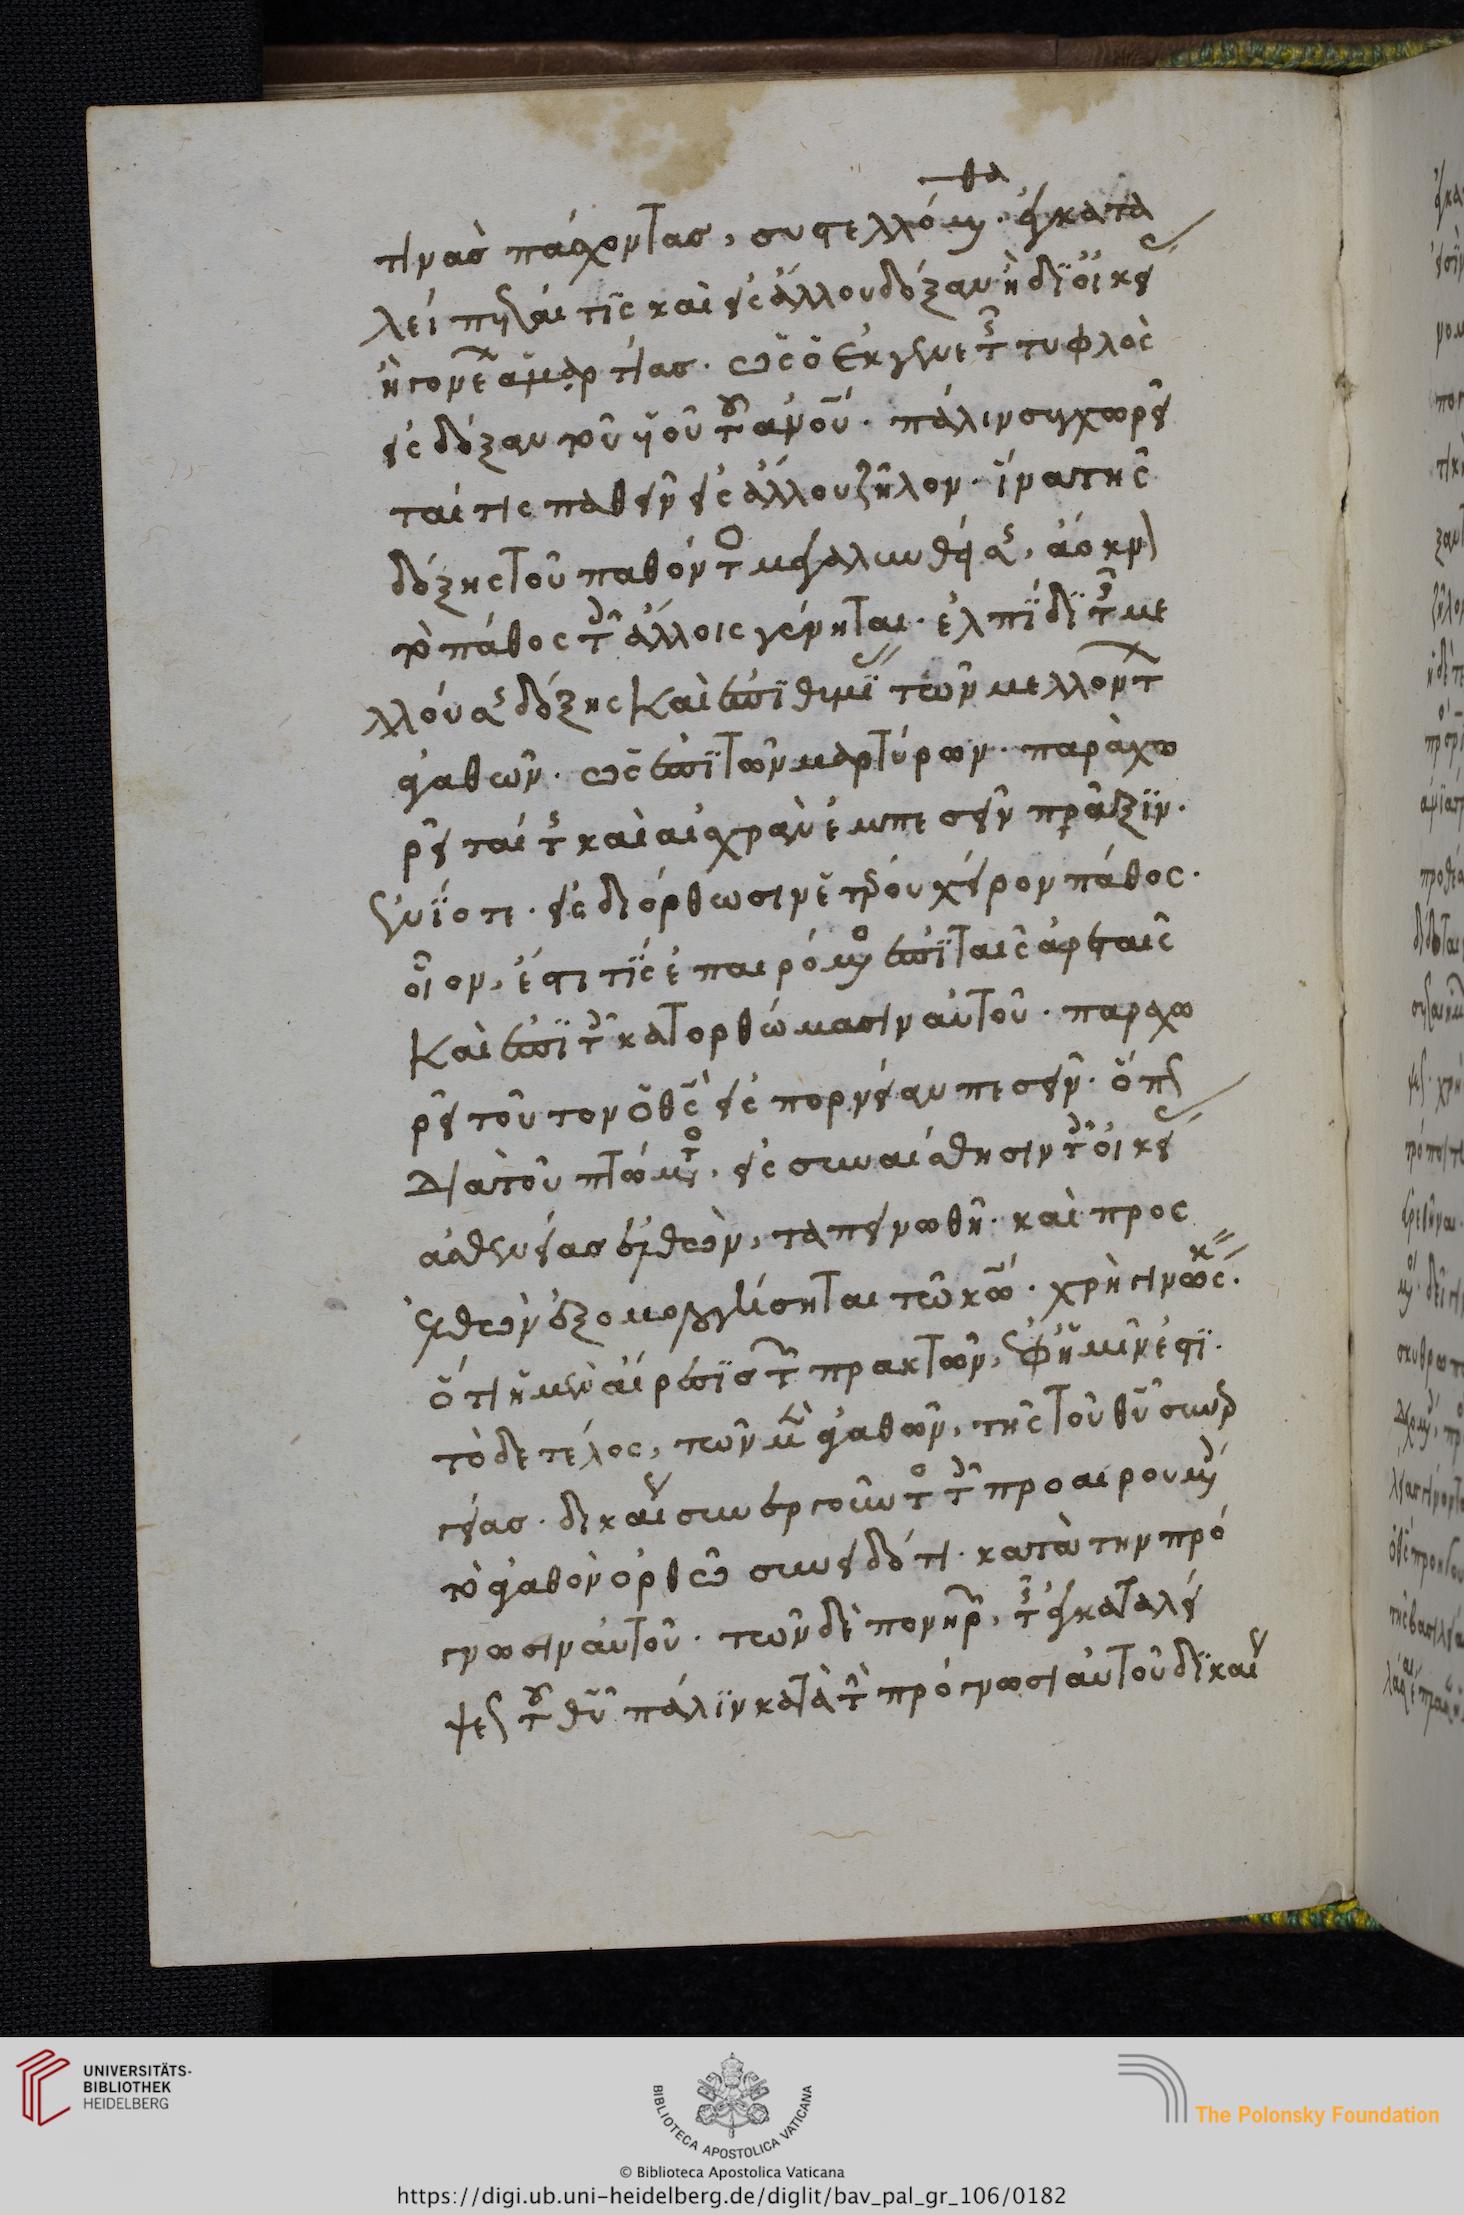 τινὰς πάσχοντας, συστελλόμεθα. ἐγκατα
λείπεται τῒς καὶ εἰς ἄλλου δόξαν ἢ δῒ οἰκείας
ἢ γονέων ἁμαρτίας. ὡς ὁ ἐκ γενετῆς τυφλὸς
εἰς δόξαν τοῦ υἱοῦ τοῦ ἀνου. πάλιν συγχωρεῖ
ταί τις παθεῖν εἰς ἄλλου ζῆλον. ἵνα τῆς
δόξης τοῦ παθόντος μεγαλυνθείσης, ἄοκνον
τὸ πάθος τοῖς ἄλλοις γένηται. ἐλπίδϊ τῆς με
λλούσης δόξης καὶ ἐπϊθυμίᾳ τῶν μελλόντων
ἀγαθῶν. ὡς ἐπῒ τῶν μαρτύρων. παραχω
ρεῖταί τις καὶ αἰσχρὰν ἐμπεσεῖν πρᾶξϊν.
ἐνΐοτι. εἰς διόρθωσιν ἑτέρου χεῖρον πάθος.
οἷον, ἔστι τῒς ἐπαιρόμενος ἐπῒ ταῖς ἀρεταῖς
καὶ ἐπῒ τοῖς κατορθώμασιν αὐτοῦ. παραχω
ρεῖ τοῦτον ὁ θς εἰς πορνείαν πεσεῖν. ὅπως
διὰ τοῦ πτώματος, εἰς συναίσθησιν τῆς οἰκείας
ἀσθενείας ἐλθὼν, ταπεινωθῆ. καὶ προς
ελθὼν ἐξομολογήσηται τῶ κω. χρὴ γινώσκειν.
ὅτι ἡ μὲν αἵρεσϊς τῶν πρακτῶν, ἐφ ἡμῖν ἐστϊ.
τὸ δὲ τέλος, τῶν μὲν ἀγαθῶν, τῆς τοῦ θυ συνερ
γείας. δικαίως συνεργοῦντος τοῖς προαιρουμένοις
τὸ ἀγαθὸν ὀρθῶ συνειδότι. κατὰ τὴν πρό
γνωσιν αὐτοῦ. τῶν δὲ πονηρῶν, τῆς ἐγκαταλεί
ψεως τοῦ θυ πάλϊν κατὰ τὴν πρόγνωσι αὐτοῦ δϊκαίως
UNIVERSITÄTS-
BIBLIOTHEK
HEIDELBERG
BIBLIOTECA APOSTOLICA VATICANA
© Biblioteca Apostolica Vaticana
The Polonsky Foundation
https://digi.ub.uni-heidelberg.de/diglit/bav_pal_gr_106/0182